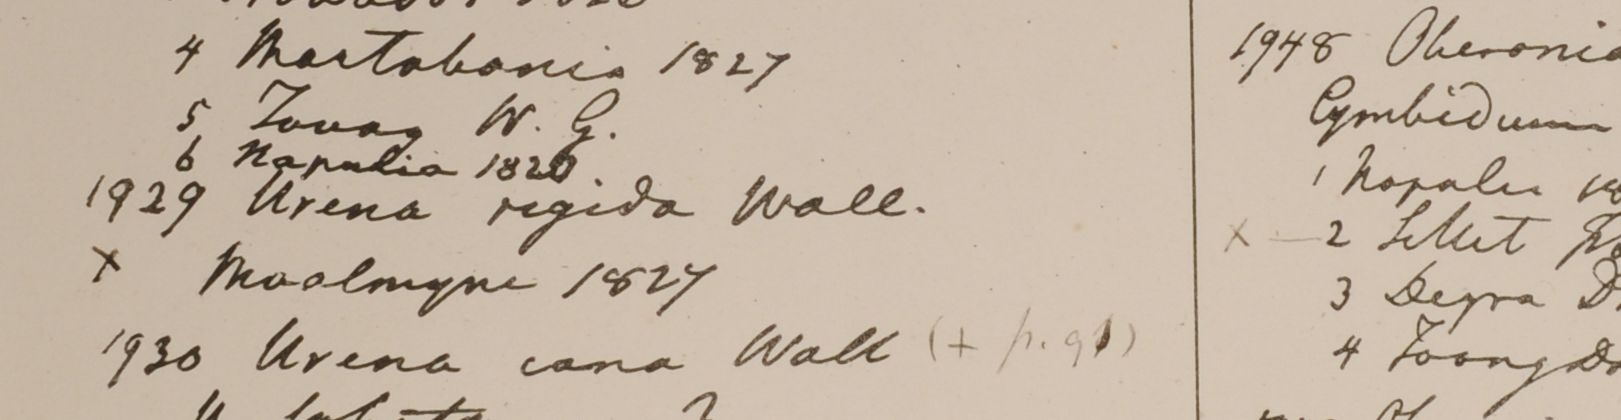 4 Martabania 1827
5 Tavoy W. G.
6 Napalia 1820.
1929 Urena rigida Wall.
x Moalmyne 1827
1930 Urena cana Wall (+ p. 91)
1948 Oberonia
Cymbidium
1 Napalia
x - 2 Sillet
3 Deyra D
4 Toong Do